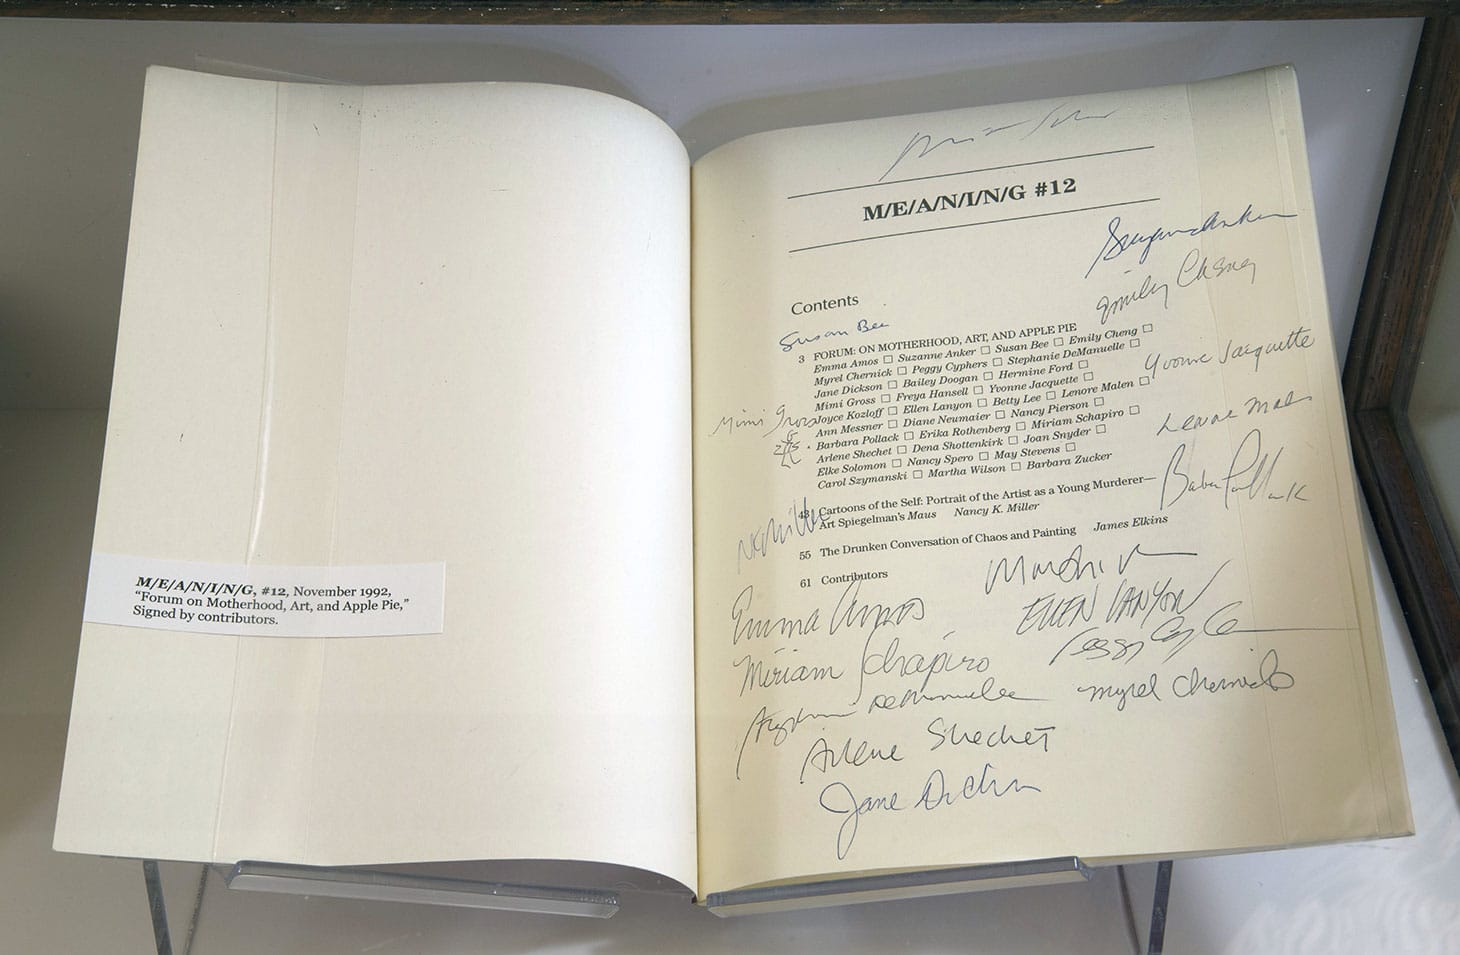 M/E/A/N/I/N/G, #12, November 1992,
“Forum on Motherhood, Art, and Apple Pie,”
Signed by contributors.
M/E/A/N/I/N/G #12
Suzanne Anker
Emily Cheng
Contents
Susan Bee
3 FORUM: ON MOTHERHOOD, ART, AND APPLE PIE
Emma Amos □ Suzanne Anker □ Susan Bee □ Emily Cheng □
Myrel Chernick □ Peggy Cyphers □ Stephanie DeManuelle □
Jane Dickson □ Bailey Doogan □ Hermine Ford □
Mimi Gross □ Freya Hansell □ Yvonne Jacquette □
Joyce Kozloff □ Ellen Lanyon □ Betty Lee □ Lenore Malen □
Ann Messner □ Diane Neumaier □ Nancy Pierson □
Barbara Pollack □ Erika Rothenberg □ Miriam Schapiro □
Arlene Shechet □ Dena Shottenkirk □ Joan Snyder □
Elke Solomon □ Nancy Spero □ May Stevens □
Carol Szymanski □ Martha Wilson □ Barbara Zucker
Yvonne Jacquette
Mimi Gross
Lenore Malen
Barbara Pollack
43 Cartoons of the Self: Portrait of the Artist as a Young Murderer—
Art Spiegelman's Maus Nancy K. Miller
NKMiller
55 The Drunken Conversation of Chaos and Painting James Elkins
61 Contributors
Emma Amos
ELLEN LANYON
Peggy Cyphers
Miriam Schapiro
Stephanie DeManuelle
Myrel Chernick
Arlene Shechet
Jane Dickson